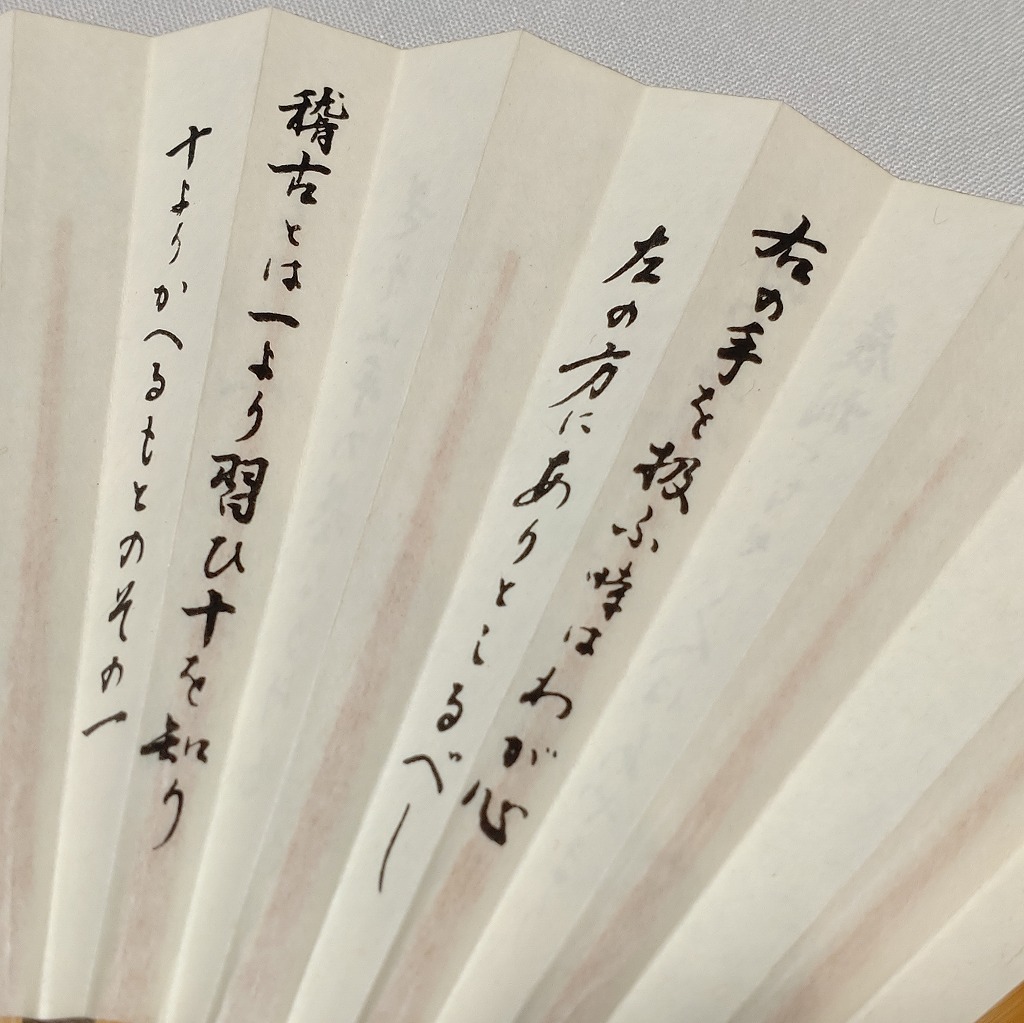 右の手を扱ふ時はわが心
左の方にありとしるべし
稽古とは一より習ひ十を知り
十よりかへるもとのその一